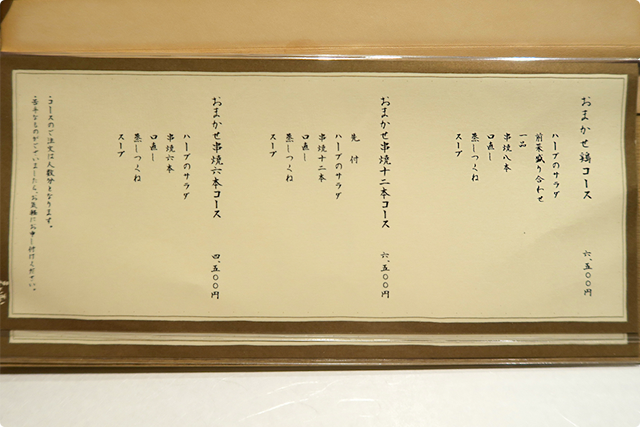 おまかせ鶏コース　六、五〇〇円
ハーブのサラダ
前菜盛り合わせ
一品
串焼八本
口直し
蒸しつくね
スープ
おまかせ串焼十二本コース　六、五〇〇円
先付
ハーブのサラダ
串焼十二本
口直し
蒸しつくね
スープ
おまかせ串焼六本コース　四、五〇〇円
ハーブのサラダ
串焼六本
口直し
蒸しつくね
スープ
・コースのご注文は人数分となります。
・苦手なものがございましたら、お気軽にお申し付けください。